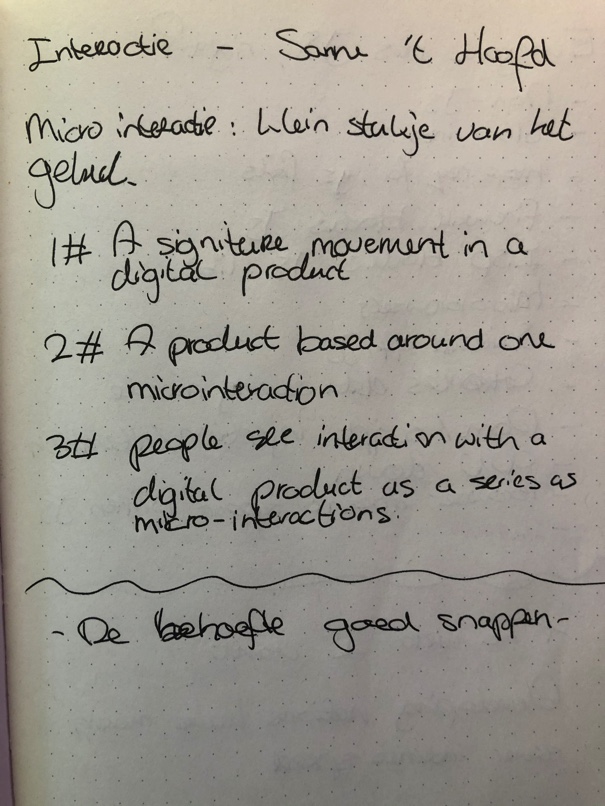 Interactie - Sanne 't Hoofd
Micro interactie: klein stukje van het
geluid.
1# A signiture movement in a
digital product
2# A product based around one
microinteraction
3# people see interaction with a
digital product as a series as
mikro-interactions.
- De behoefte goed snappen -